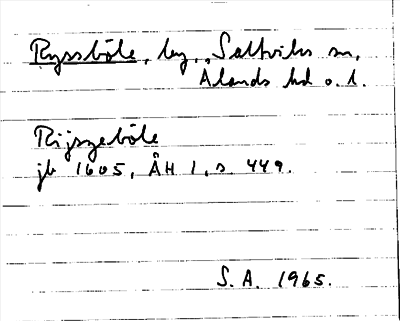 Ryssböle, by, Saltviks sn,
Ålands hd o. l.
Rijsgeböle
jb 1605, ÅH 1, s. 449.
S. A. 1965.